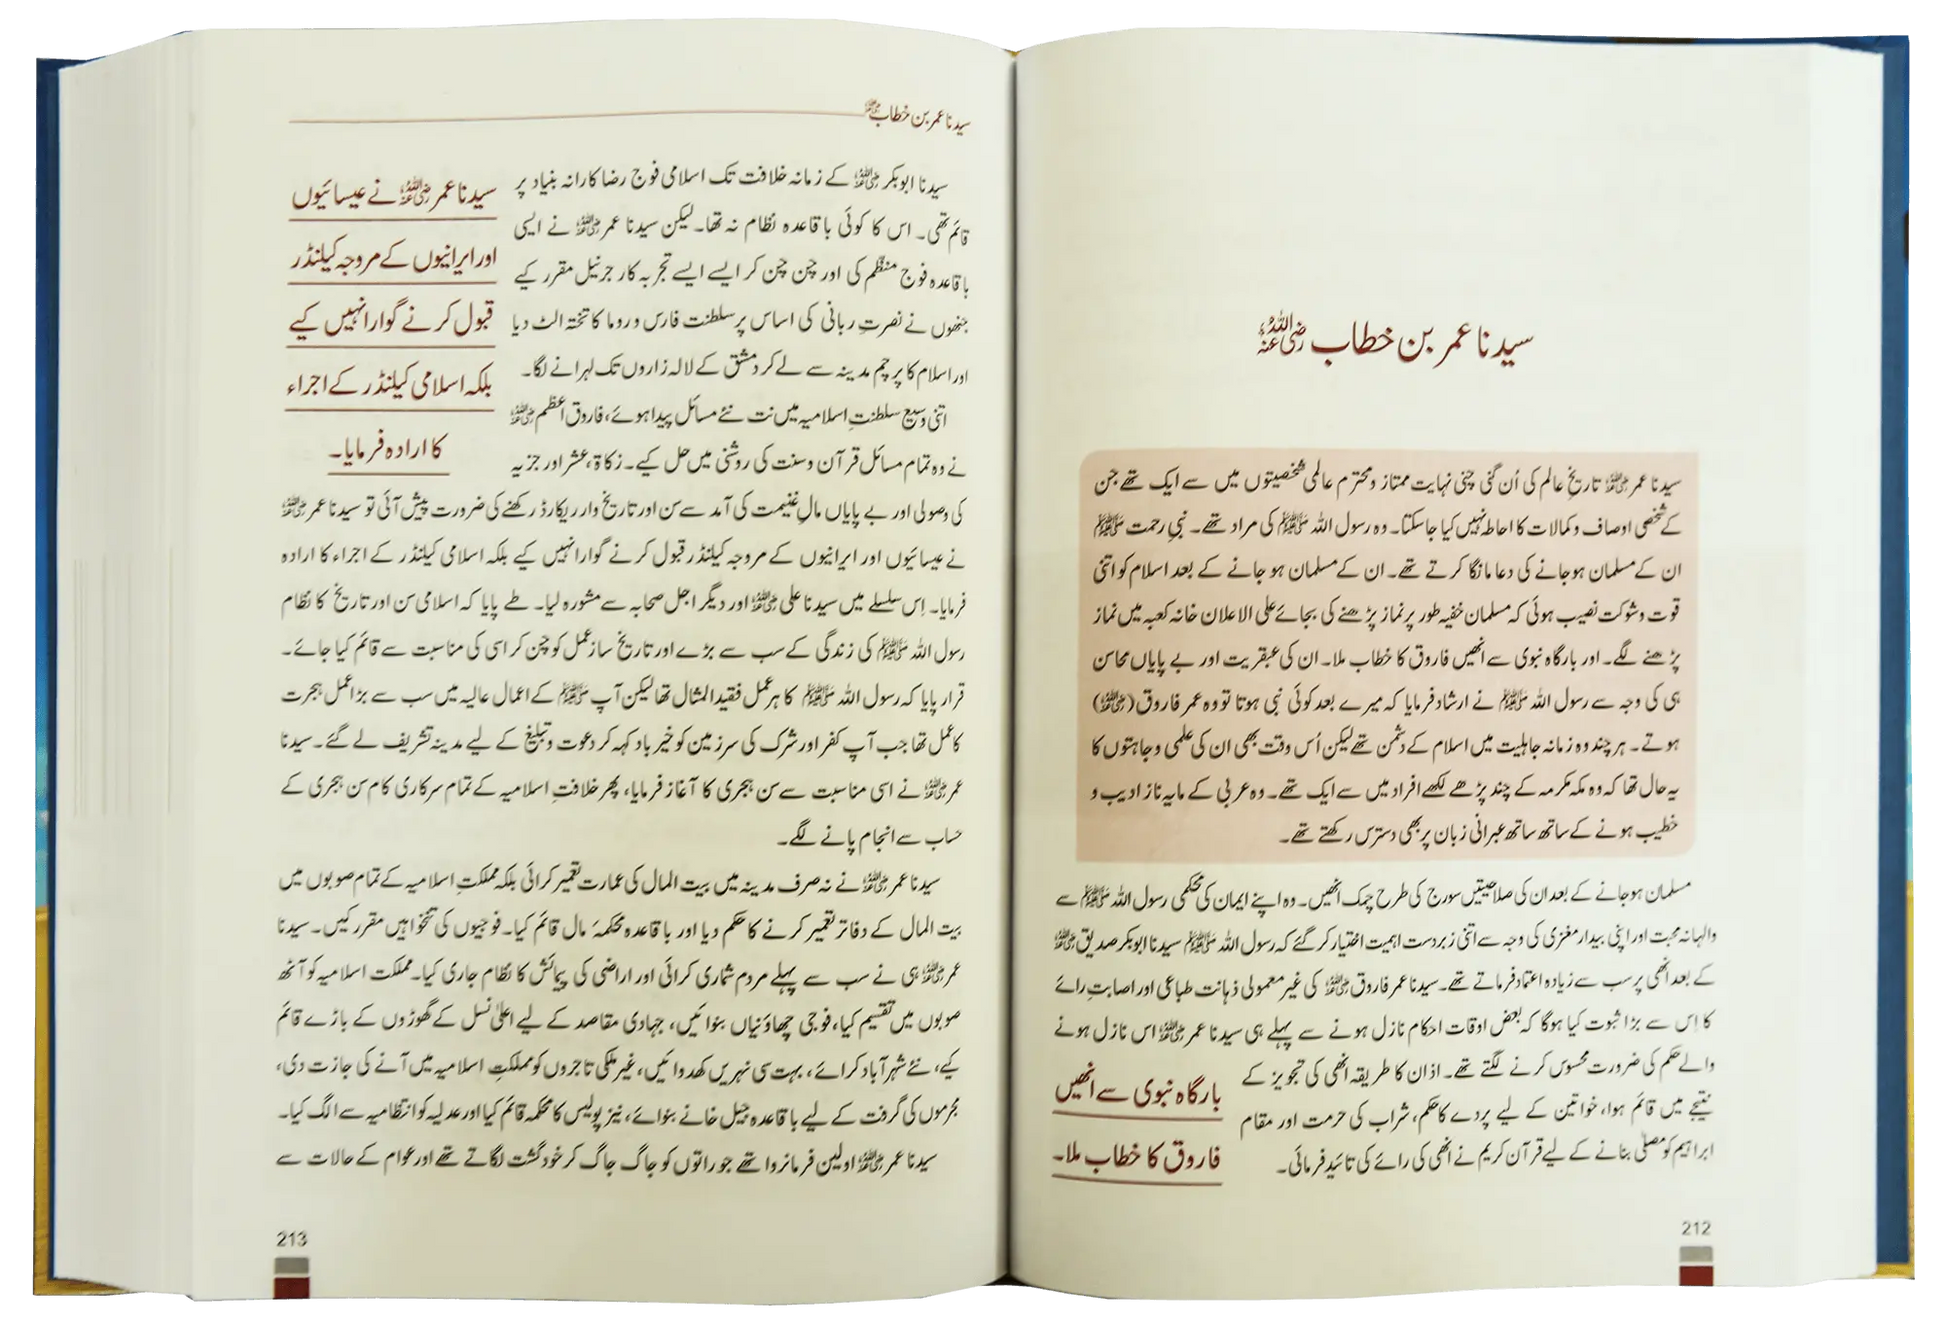 سیدنا عمر بن خطاب رضی اللہ عنہ
سیدنا عمر رضی اللہ عنہ تاریخِ عالم کی اُن گنی چنی نہایت ممتاز و محترم عالمی شخصیتوں میں سے ایک تھے جن
کے شخصی اوصاف و کمالات کا احاطہ نہیں کیا جاسکتا۔ وہ رسول اللہ ﷺ کی مراد تھے۔ نبیِ رحمت ﷺ
ان کے مسلمان ہوجانے کی دعا مانگا کرتے تھے۔ ان کے مسلمان ہو جانے کے بعد اسلام کو اتنی
قوت و شوکت نصیب ہوئی کہ مسلمان خفیہ طور پر نماز پڑھنے کی بجائے علی الاعلان خانہ کعبہ میں نماز
پڑھنے لگے۔ اور بارگاہ نبوی سے انھیں فاروق کا خطاب ملا۔ ان کی عبقریت اور بے پایاں محاسن
ہی کی وجہ سے رسول اللہ ﷺ نے ارشاد فرمایا کہ میرے بعد کوئی نبی ہوتا تو وہ عمر فاروق (رضی اللہ عنہ)
ہوتے۔ ہر چند وہ زمانہ جاہلیت میں اسلام کے دشمن تھے لیکن اُس وقت بھی ان کی علمی وجاہتوں کا
یہ حال تھا کہ وہ مکہ مکرمہ کے چند پڑھے لکھے افراد میں سے ایک تھے۔ وہ عربی کے مایہ ناز ادیب و
خطیب ہونے کے ساتھ ساتھ عبرانی زبان پر بھی دسترس رکھتے تھے۔
مسلمان ہوجانے کے بعد ان کی صلاحیتیں سورج کی طرح چمک اٹھیں۔ وہ اپنے ایمان کی محکمی رسول اللہ ﷺ سے
والہانہ محبت اور اپنی بیدار مغزی کی وجہ سے اتنی زبردست اہمیت اختیار کر گئے کہ رسول اللہ ﷺ سیدنا ابوبکر صدیق رضی اللہ عنہ
کے بعد انھی پر سب سے زیادہ اعتماد فرماتے تھے۔ سیدنا عمر فاروق رضی اللہ عنہ کی غیر معمولی ذہانت طباعی اور اصابتِ رائے
کا اِس سے بڑا ثبوت کیا ہوگا کہ بعض اوقات احکام نازل ہونے سے پہلے ہی سیدنا عمر رضی اللہ عنہ اس نازل ہونے
والے حکم کی ضرورت محسوس کرنے لگتے تھے۔ اذان کا طریقہ انھی کی تجویز کے
نتیجے میں قائم ہوا، خواتین کے لیے پردے کا حکم، شراب کی حرمت اور مقام
ابراہیم کو مصلیٰ بنانے کے لیے قرآن کریم نے انھی کی رائے کی تائید فرمائی۔
بارگاہ نبوی سے انھیں
فاروق کا خطاب ملا۔
212
سیدنا عمر بن خطاب رضی اللہ عنہ
سیدنا ابوبکر رضی اللہ عنہ کے زمانہ خلافت تک اسلامی فوج رضا کارانہ بنیاد پر
قائم تھی۔ اس کا کوئی باقاعدہ نظام نہ تھا۔ لیکن سیدنا عمر رضی اللہ عنہ نے ایسی
باقاعدہ فوج منظّم کی اور چن چن کر ایسے ایسے تجربہ کار جرنیل مقرر کیے
جنھوں نے نصرتِ ربانی کی اساس پر سلطنت فارس و روما کا تختہ الٹ دیا
اور اسلام کا پرچم مدینہ سے لے کر دمشق کے لالہ زاروں تک لہرانے لگا۔
اتنی وسیع سلطنتِ اسلامیہ میں نت نئے مسائل پیدا ہوئے، فاروق اعظم رضی اللہ عنہ
نے وہ تمام مسائل قرآن و سنت کی روشنی میں حل کیے۔ زکاۃ، عشر اور جزیہ
سیدنا عمر رضی اللہ عنہ نے عیسائیوں
اور ایرانیوں کے مروجہ کیلنڈر
قبول کرنے گوارا نہیں کیے
بلکہ اسلامی کیلنڈر کے اجراء
کا ارادہ فرمایا۔
کی وصولی اور بے پایاں مالِ غنیمت کی آمد سے سن اور تاریخ وار ریکارڈ رکھنے کی ضرورت پیش آئی تو سیدنا عمر رضی اللہ عنہ
نے عیسائیوں اور ایرانیوں کے مروجہ کیلنڈر قبول کرنے گوارا نہیں کیے بلکہ اسلامی کیلنڈر کے اجراء کا ارادہ
فرمایا۔ اِس سلسلے میں سیدنا علی رضی اللہ عنہ اور دیگر اجل صحابہ سے مشورہ لیا۔ طے پایا کہ اسلامی سن اور تاریخ کا نظام
رسول اللہ ﷺ کی زندگی کے سب سے بڑے اور تاریخ ساز عمل کو چن کر اسی کی مناسبت سے قائم کیا جائے۔
قرار پایا کہ رسول اللہ ﷺ کا ہر عمل فقید المثال تھا لیکن آپ ﷺ کے اعمال عالیہ میں سب سے بڑا عمل ہجرت
کا عمل تھا جب آپ کفر اور شرک کی سرزمین کو خیر باد کہہ کر دعوت و تبلیغ کے لیے مدینہ تشریف لے گئے۔ سیدنا
عمر رضی اللہ عنہ نے اسی مناسبت سے سن ہجری کا آغاز فرمایا، پھر خلافتِ اسلامیہ کے تمام سرکاری کام سن ہجری کے
حساب سے انجام پانے لگے۔
سیدنا عمر رضی اللہ عنہ نے نہ صرف مدینہ میں بیت المال کی عمارت تعمیر کرائی بلکہ مملکتِ اسلامیہ کے تمام صوبوں میں
بیت المال کے دفاتر تعمیر کرنے کا حکم دیا اور باقاعدہ محکمۂ مال قائم کیا۔ فوجیوں کی تنخواہیں مقرر کیں۔ سیدنا
عمر رضی اللہ عنہ ہی نے سب سے پہلے مردم شماری کرائی اور اراضی کی پیمائش کا نظام جاری کیا۔ مملکت اسلامیہ کو آٹھ
صوبوں میں تقسیم کیا، فوجی چھاؤنیاں بنوائیں، جہادی مقاصد کے لیے اعلیٰ نسل کے گھوڑوں کے باڑے قائم
کیے، نئے شہر آباد کرائے، بہت سی نہریں کھدوائیں، غیر ملکی تاجروں کو مملکتِ اسلامیہ میں آنے کی جازت دی،
مجرموں کی گرفت کے لیے باقاعدہ جیل خانے بنوائے، نیز پولیس کا محکمہ قائم کیا اور عدلیہ کو انتظامیہ سے الگ کیا۔
سیدنا عمر رضی اللہ عنہ اولین فرمانروا تھے جو راتوں کو جاگ جاگ کر خود گشت لگاتے تھے اور عوام کے حالات سے
213